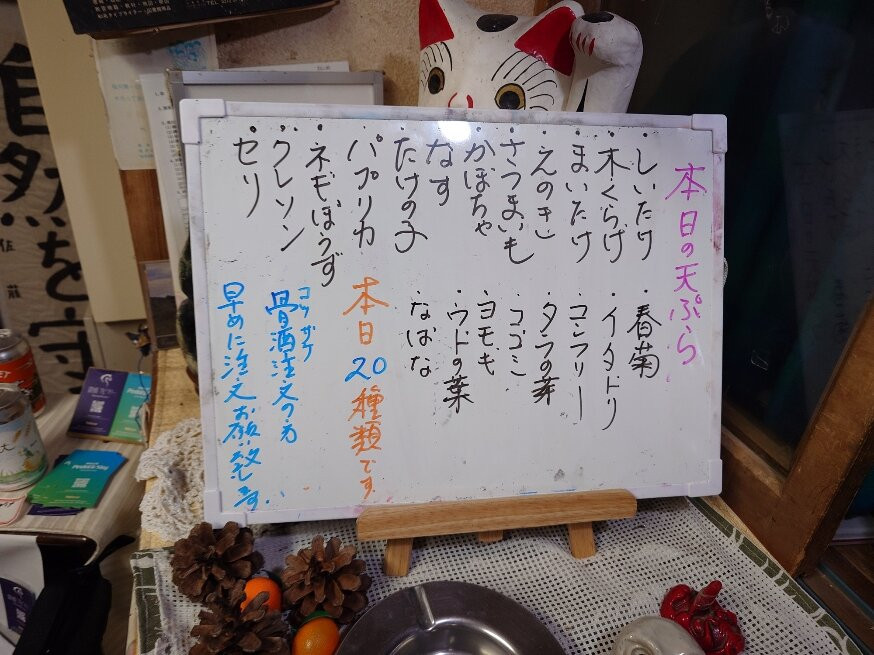 本日の天ぷら
・しいたけ
・木くらげ
・まいたけ
・えのき
・さつまいも
・かぼちゃ
・なす
・たけの子
・パプリカ
・ネギぼうず
・クレソン
・セリ
・春菊
・イタドリ
・コンフリー
・タラの芽
・コゴミ
・ヨモギ
・ウドの葉
・なばな
本日20種類です
コツザケ
骨酒注文の方
早めに注文お願い致します。
自然を守